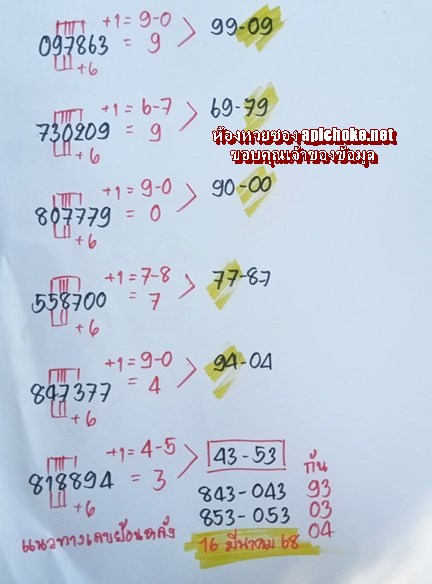 +1 = 9-0
097863 = 9 > 99-09
+6
+1 = 6-7
730209 = 9 > 69-79
+6
ห้องหวยซอง apichoke.net
ขอบคุณเจ้าของข้อมูล
+1 = 9-0
807779 = 0 > 90-00
+6
+1 = 7-8
558700 = 7 > 77-87
+6
+1 = 9-0
847377 = 4 > 94-04
+6
+1 = 4-5
818894 = 3 > 43-53
+6
กัน
843-043 93
853-053 03
แนวทางเลขย้อนหลัง 16 มีนาคม 68 04